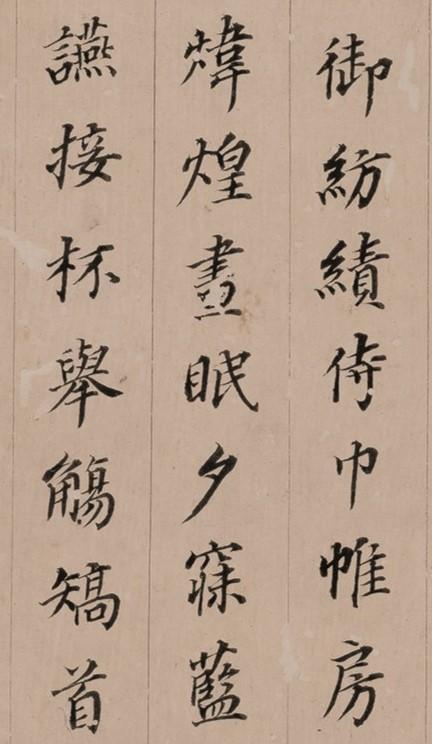 御紡績侍巾帷房
煒煌晝眠夕寐藍
讌接杯舉觴矯首